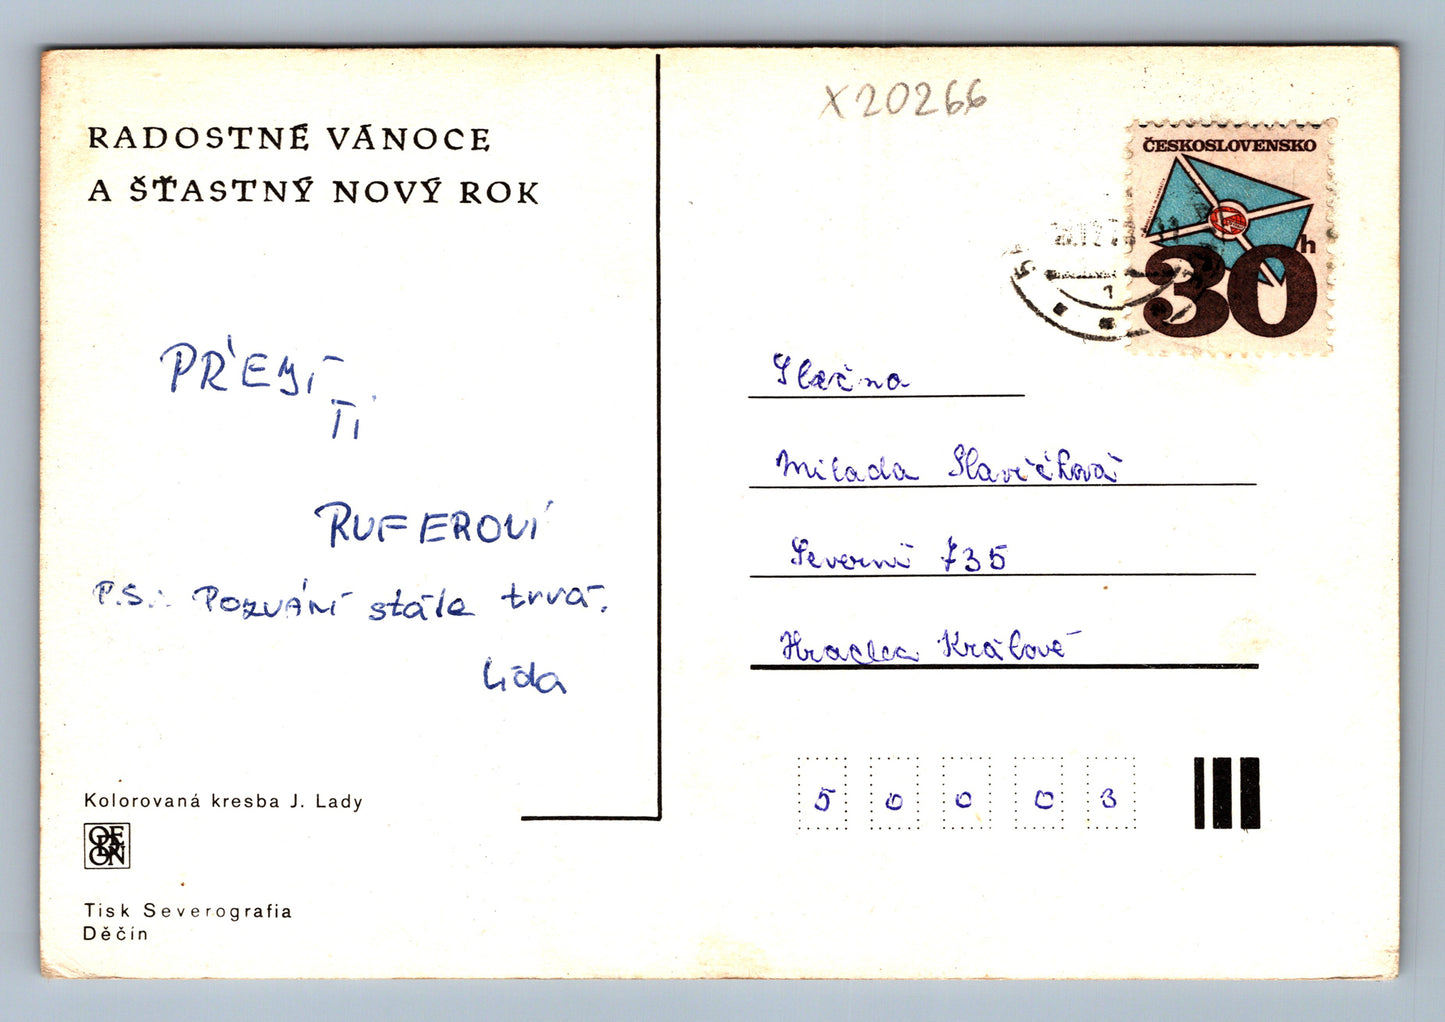 RADOSTNÉ VÁNOCE
A ŠŤASTNÝ NOVÝ ROK
PŘEJÍ
TI
RUFEROVI
P.S.: POZVÁNÍ stále trvá.
Lída
Kolorovaná kresba J. Lady
ODEON
Tisk Severografia
Děčín
X20266
ČESKOSLOVENSKO
30h
1
Slečna
Milada Slavíčková
Severní 735
Hradec Králové
5 0 0 0 3